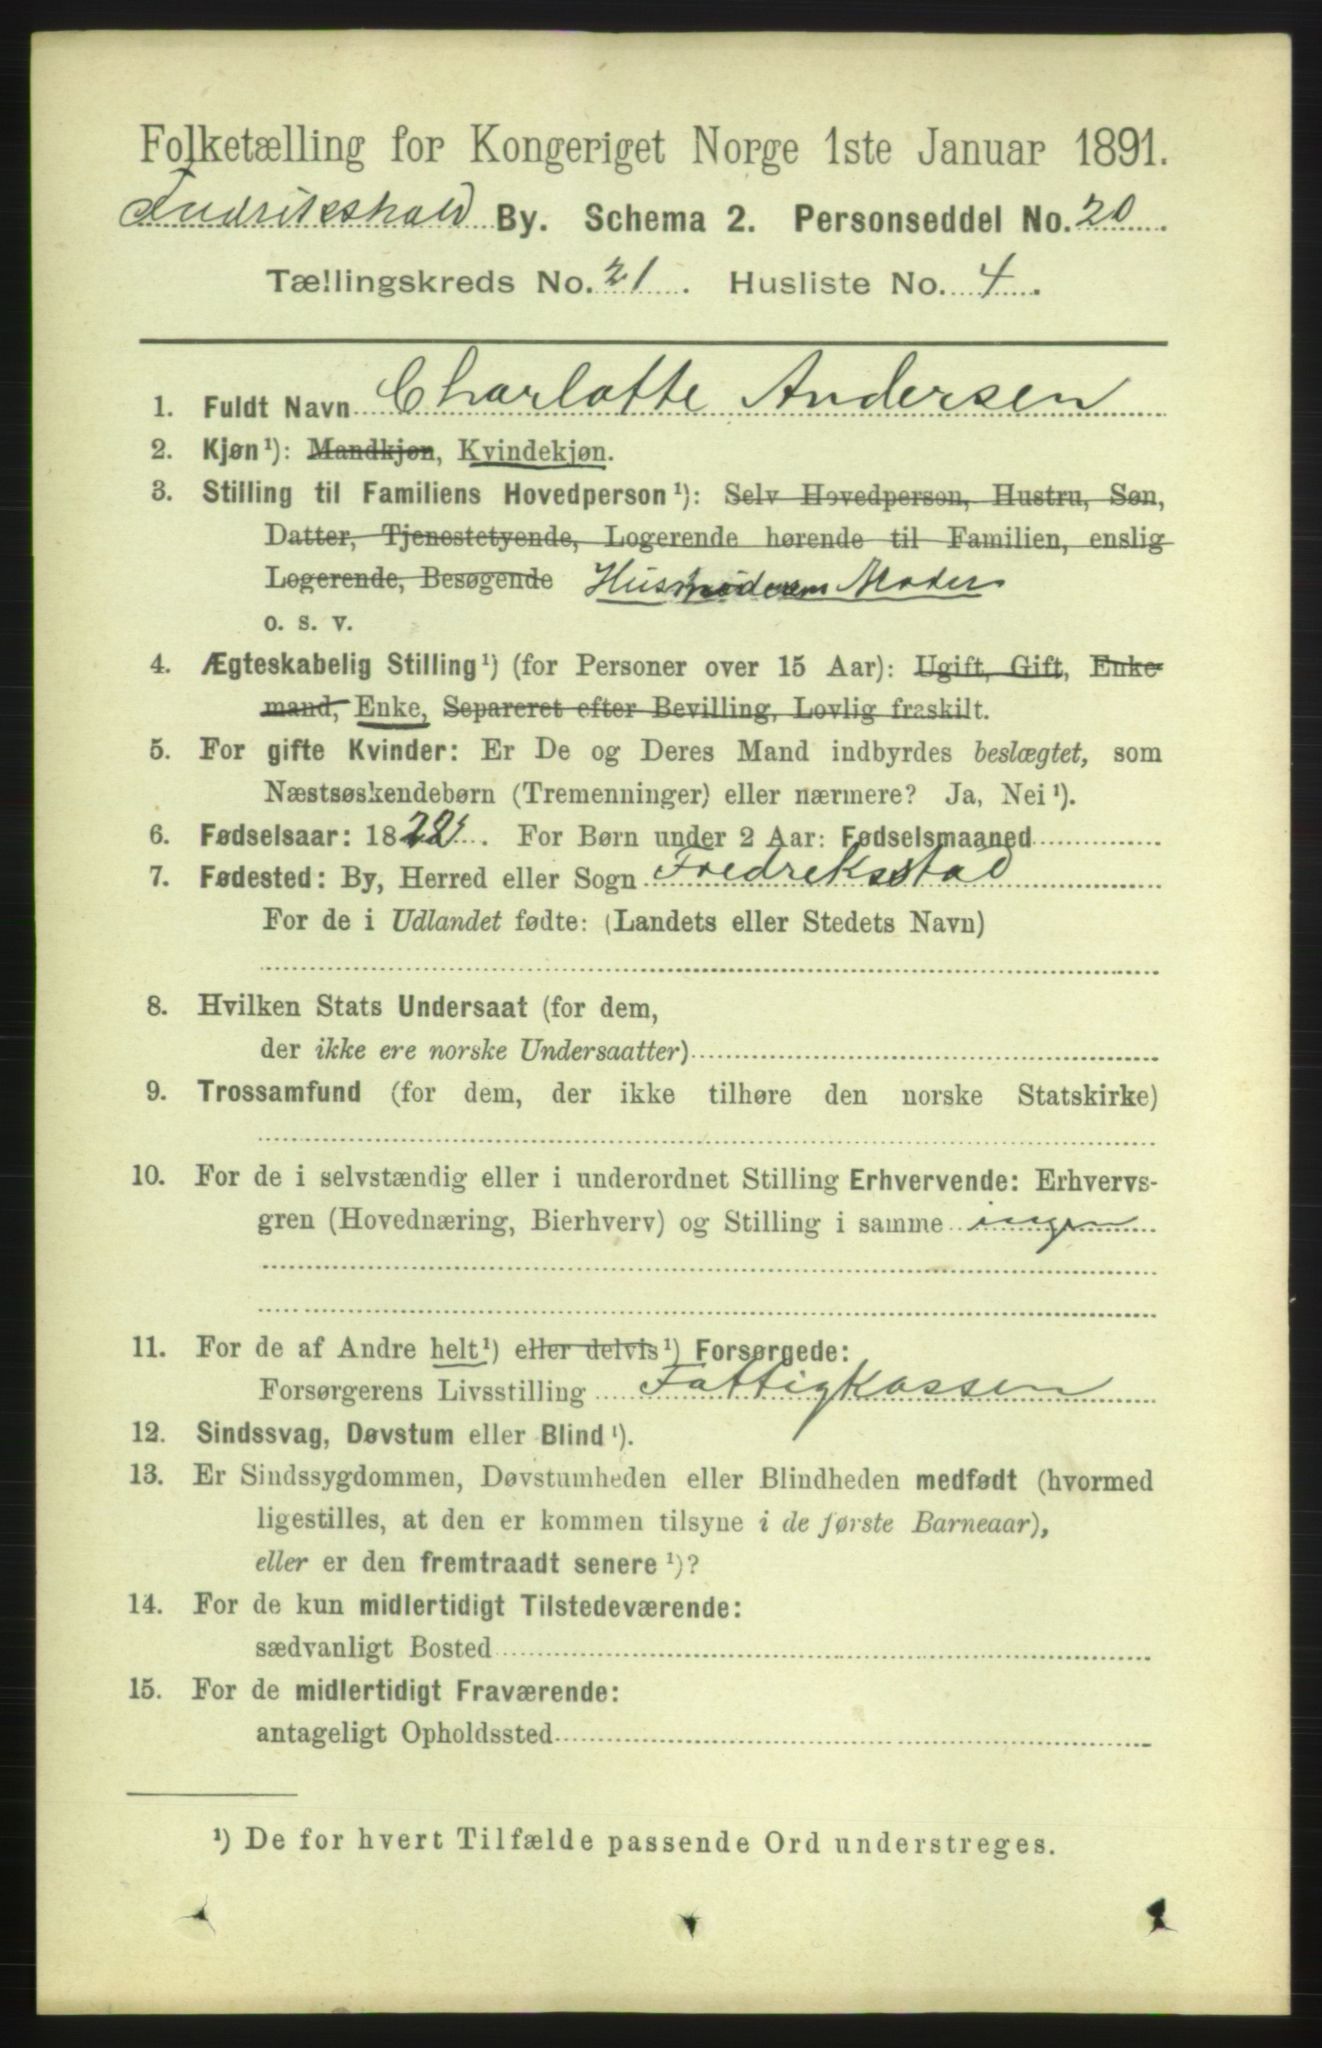 Folketælling for Kongeriget Norge 1ste Januar 1891.
Fredrikshald By. Schema 2. Personseddel No. 20.
Tællingskreds No. 21. Husliste No. 4.
1. Fuldt Navn Charlotte Andersen
2. Kjøn¹): Mandkjøn, Kvindekjøn.
3. Stilling til Familiens Hovedperson¹): Selv Hovedperson, Hustru, Søn,
Datter, Tjenestetyende, Logerende hørende til Familien, enslig
Logerende, Besøgende Husmoderens Moder
o. s. v.
4. Ægteskabelig Stilling¹) (for Personer over 15 Aar): Ugift, Gift, Enke-
mand, Enke, Separeret efter Bevilling, Lovlig fraskilt.
5. For gifte Kvinder: Er De og Deres Mand indbyrdes beslægtet, som
Næstsøskendebørn (Tremenninger) eller nærmere? Ja, Nei¹).
6. Fødselsaar: 18. For Børn under 2 Aar: Fødselsmaaned
7. Fødested: By, Herred eller Sogn Fredriksstad
For de i Udlandet fødte: (Landets eller Stedets Navn)
8. Hvilken Stats Undersaat (for dem,
der ikke ere norske Undersaatter)
9. Trossamfund (for dem, der ikke tilhøre den norske Statskirke)
10. For de i selvstændig eller i underordnet Stilling Erhvervende: Erhvervs-
gren (Hovednæring, Bierhverv) og Stilling i samme ingen
11. For de af Andre helt¹) eller delvis¹) Forsørgede:
Forsørgerens Livsstilling Fattigkassen
12. Sindssvag, Døvstum eller Blind¹).
13. Er Sindssygdommen, Døvstumheden eller Blindheden medfødt (hvormed
ligestilles, at den er kommen tilsyne i de første Barneaar),
eller er den fremtraadt senere¹)?
14. For de kun midlertidigt Tilstedeværende:
sædvanligt Bosted
15. For de midlertidigt Fraværende:
antageligt Opholdssted
¹) De for hvert Tilfælde passende Ord understreges.